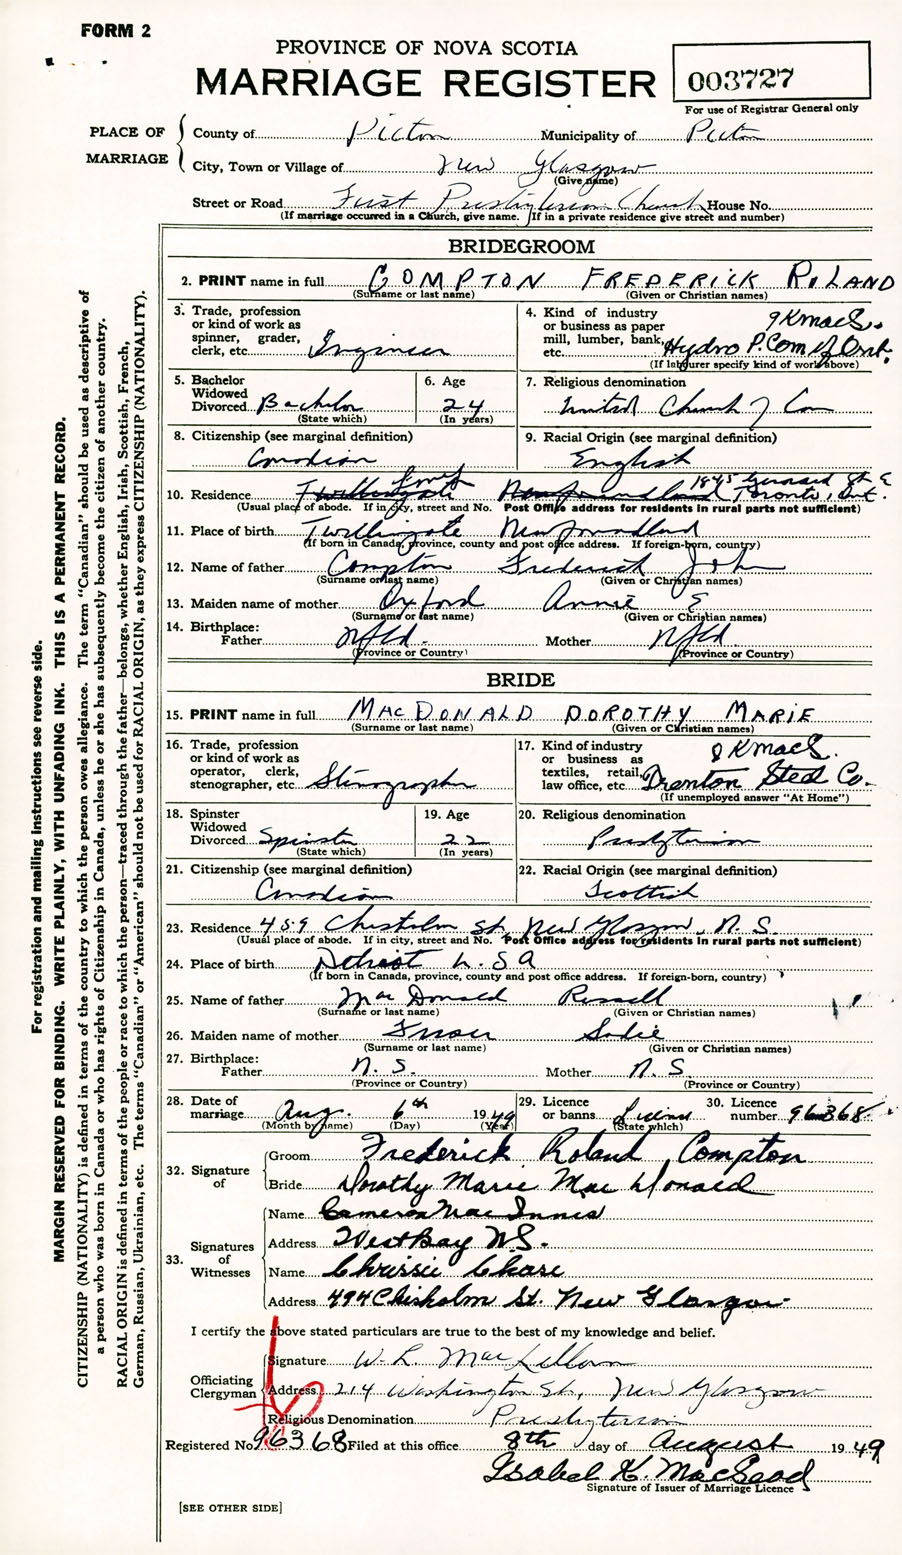 FORM 2
PROVINCE OF NOVA SCOTIA
MARRIAGE REGISTER
003727
For use of Registrar General only
PLACE OF MARRIAGE
County of Pictou Municipality of Pictou
City, Town or Village of New Glasgow
(Give name)
Street or Road First Presbyterian Church House No.
(If marriage occurred in a Church, give name. If in a private residence give street and number)
BRIDEGROOM
2. PRINT name in full COMPTON FREDERICK ROLAND
(Surname or last name) (Given or Christian names)
3. Trade, profession or kind of work as spinner, grader, clerk, etc. Engineer
4. Kind of industry or business as paper mill, lumber, bank, etc. Hydro P. Com of Ont.
OK MacL.
(If labourer specify kind of work above)
5. Bachelor Widowed Divorced Bachelor
(State which)
6. Age 24
(In years)
7. Religious denomination United Church of Can
8. Citizenship (see marginal definition) Canadian
9. Racial Origin (see marginal definition) English
10. Residence Twillingate Newfoundland 1845 Gerrard St E Toronto, Ont.
(Usual place of abode. If in city, street and No. Post Office address for residents in rural parts not sufficient)
11. Place of birth Twillingate Newfoundland
(If born in Canada, province, county and post office address. If foreign-born, country)
12. Name of father Compton Frederick John
(Surname or last name) (Given or Christian names)
13. Maiden name of mother Oxford Annie E
(Surname or last name) (Given or Christian names)
14. Birthplace: Father Nfld. Mother Nfld
(Province or Country) (Province or Country)
BRIDE
15. PRINT name in full MACDONALD DOROTHY MARIE
(Surname or last name) (Given or Christian names)
16. Trade, profession or kind of work as operator, clerk, stenographer, etc. Stenographer
17. Kind of industry or business as textiles, retail, law office, etc. Trenton Steel Co.
OK MacL.
(If unemployed answer "At Home")
18. Spinster Widowed Divorced Spinster
(State which)
19. Age 22
(In years)
20. Religious denomination Presbyterian
21. Citizenship (see marginal definition) Canadian
22. Racial Origin (see marginal definition) Scottish
23. Residence 459 Chisholm St, New Glasgow, N.S.
(Usual place of abode. If in city, street and No. Post Office address for residents in rural parts not sufficient)
24. Place of birth Detroit U.S.A
(If born in Canada, province, county and post office address. If foreign-born, country)
25. Name of father MacDonald Russell
(Surname or last name) (Given or Christian names)
26. Maiden name of mother Fraser Sadie
(Surname or last name) (Given or Christian names)
27. Birthplace: Father N. S. Mother N. S.
(Province or Country) (Province or Country)
28. Date of marriage Aug. 6th 1949
(Month by name) (Day) (Year)
29. Licence or banns License
(State which)
30. Licence number 96368
32. Signature of
Groom Frederick Roland Compton
Bride Dorothy Marie MacDonald
33. Signatures of Witnesses
Name Cameron MacInnis
Address West Bay N.S.
Name Chrissie Chase
Address 494 Chisholm St. New Glasgow
I certify the above stated particulars are true to the best of my knowledge and belief.
Officiating Clergyman
Signature W. L. MacLellan
Address 214 Washington St., New Glasgow
Religious Denomination Presbyterian
Registered No. 96368 Filed at this office 8th day of August 1949
Isabel K. MacLeod
Signature of Issuer of Marriage Licence
[SEE OTHER SIDE]
For registration and mailing instructions see reverse side.
MARGIN RESERVED FOR BINDING. WRITE PLAINLY, WITH UNFADING INK. THIS IS A PERMANENT RECORD.
CITIZENSHIP (NATIONALITY) is defined in terms of the country to which the person owes allegiance. The term "Canadian" should be used as descriptive of
a person who was born in Canada or who has rights of Citizenship in Canada, unless he or she has subsequently become the citizen of another country.
RACIAL ORIGIN is defined in terms of the people or race to which the person—traced through the father—belongs, whether English, Irish, Scottish, French,
German, Russian, Ukrainian, etc. The terms "Canadian" or "American" should not be used for RACIAL ORIGIN, as they express CITIZENSHIP (NATIONALITY).